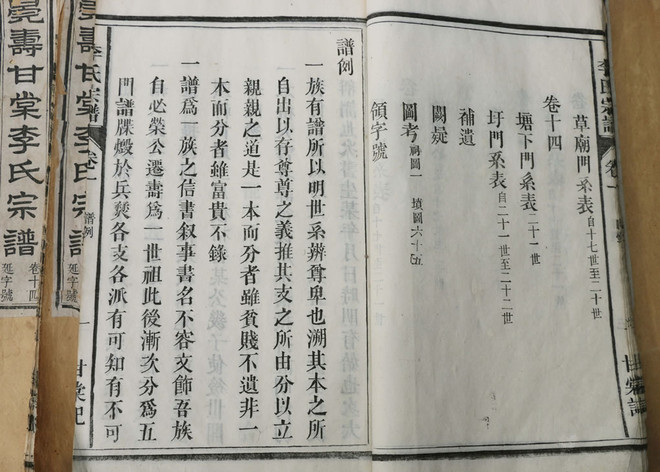 李氏宗譜
卷一
草廟門系表 自十七世至二十世
卷十四
塘下門系表 二十一世
圩門系表 自二十一世至二十二世
補遺
闕疑
圖考 祠圖一 墳圖六十五
領字號
譜例
一族有譜所以明世系辨尊卑也溯其本之所
自出以存尊尊之義推其支之所由分以立
親親之道是一本而分者雖貧賤不遺非一
本而分者雖富貴不錄
一譜爲一族之信書叙事書名不容文飾吾族
自必榮公遷壽爲一世祖此後漸次分爲五
門譜牒燬於兵燹各支各派有可知有不可
李氏宗譜
譜例
一
甘棠
壽甘棠李氏宗譜
卷十四
延字號